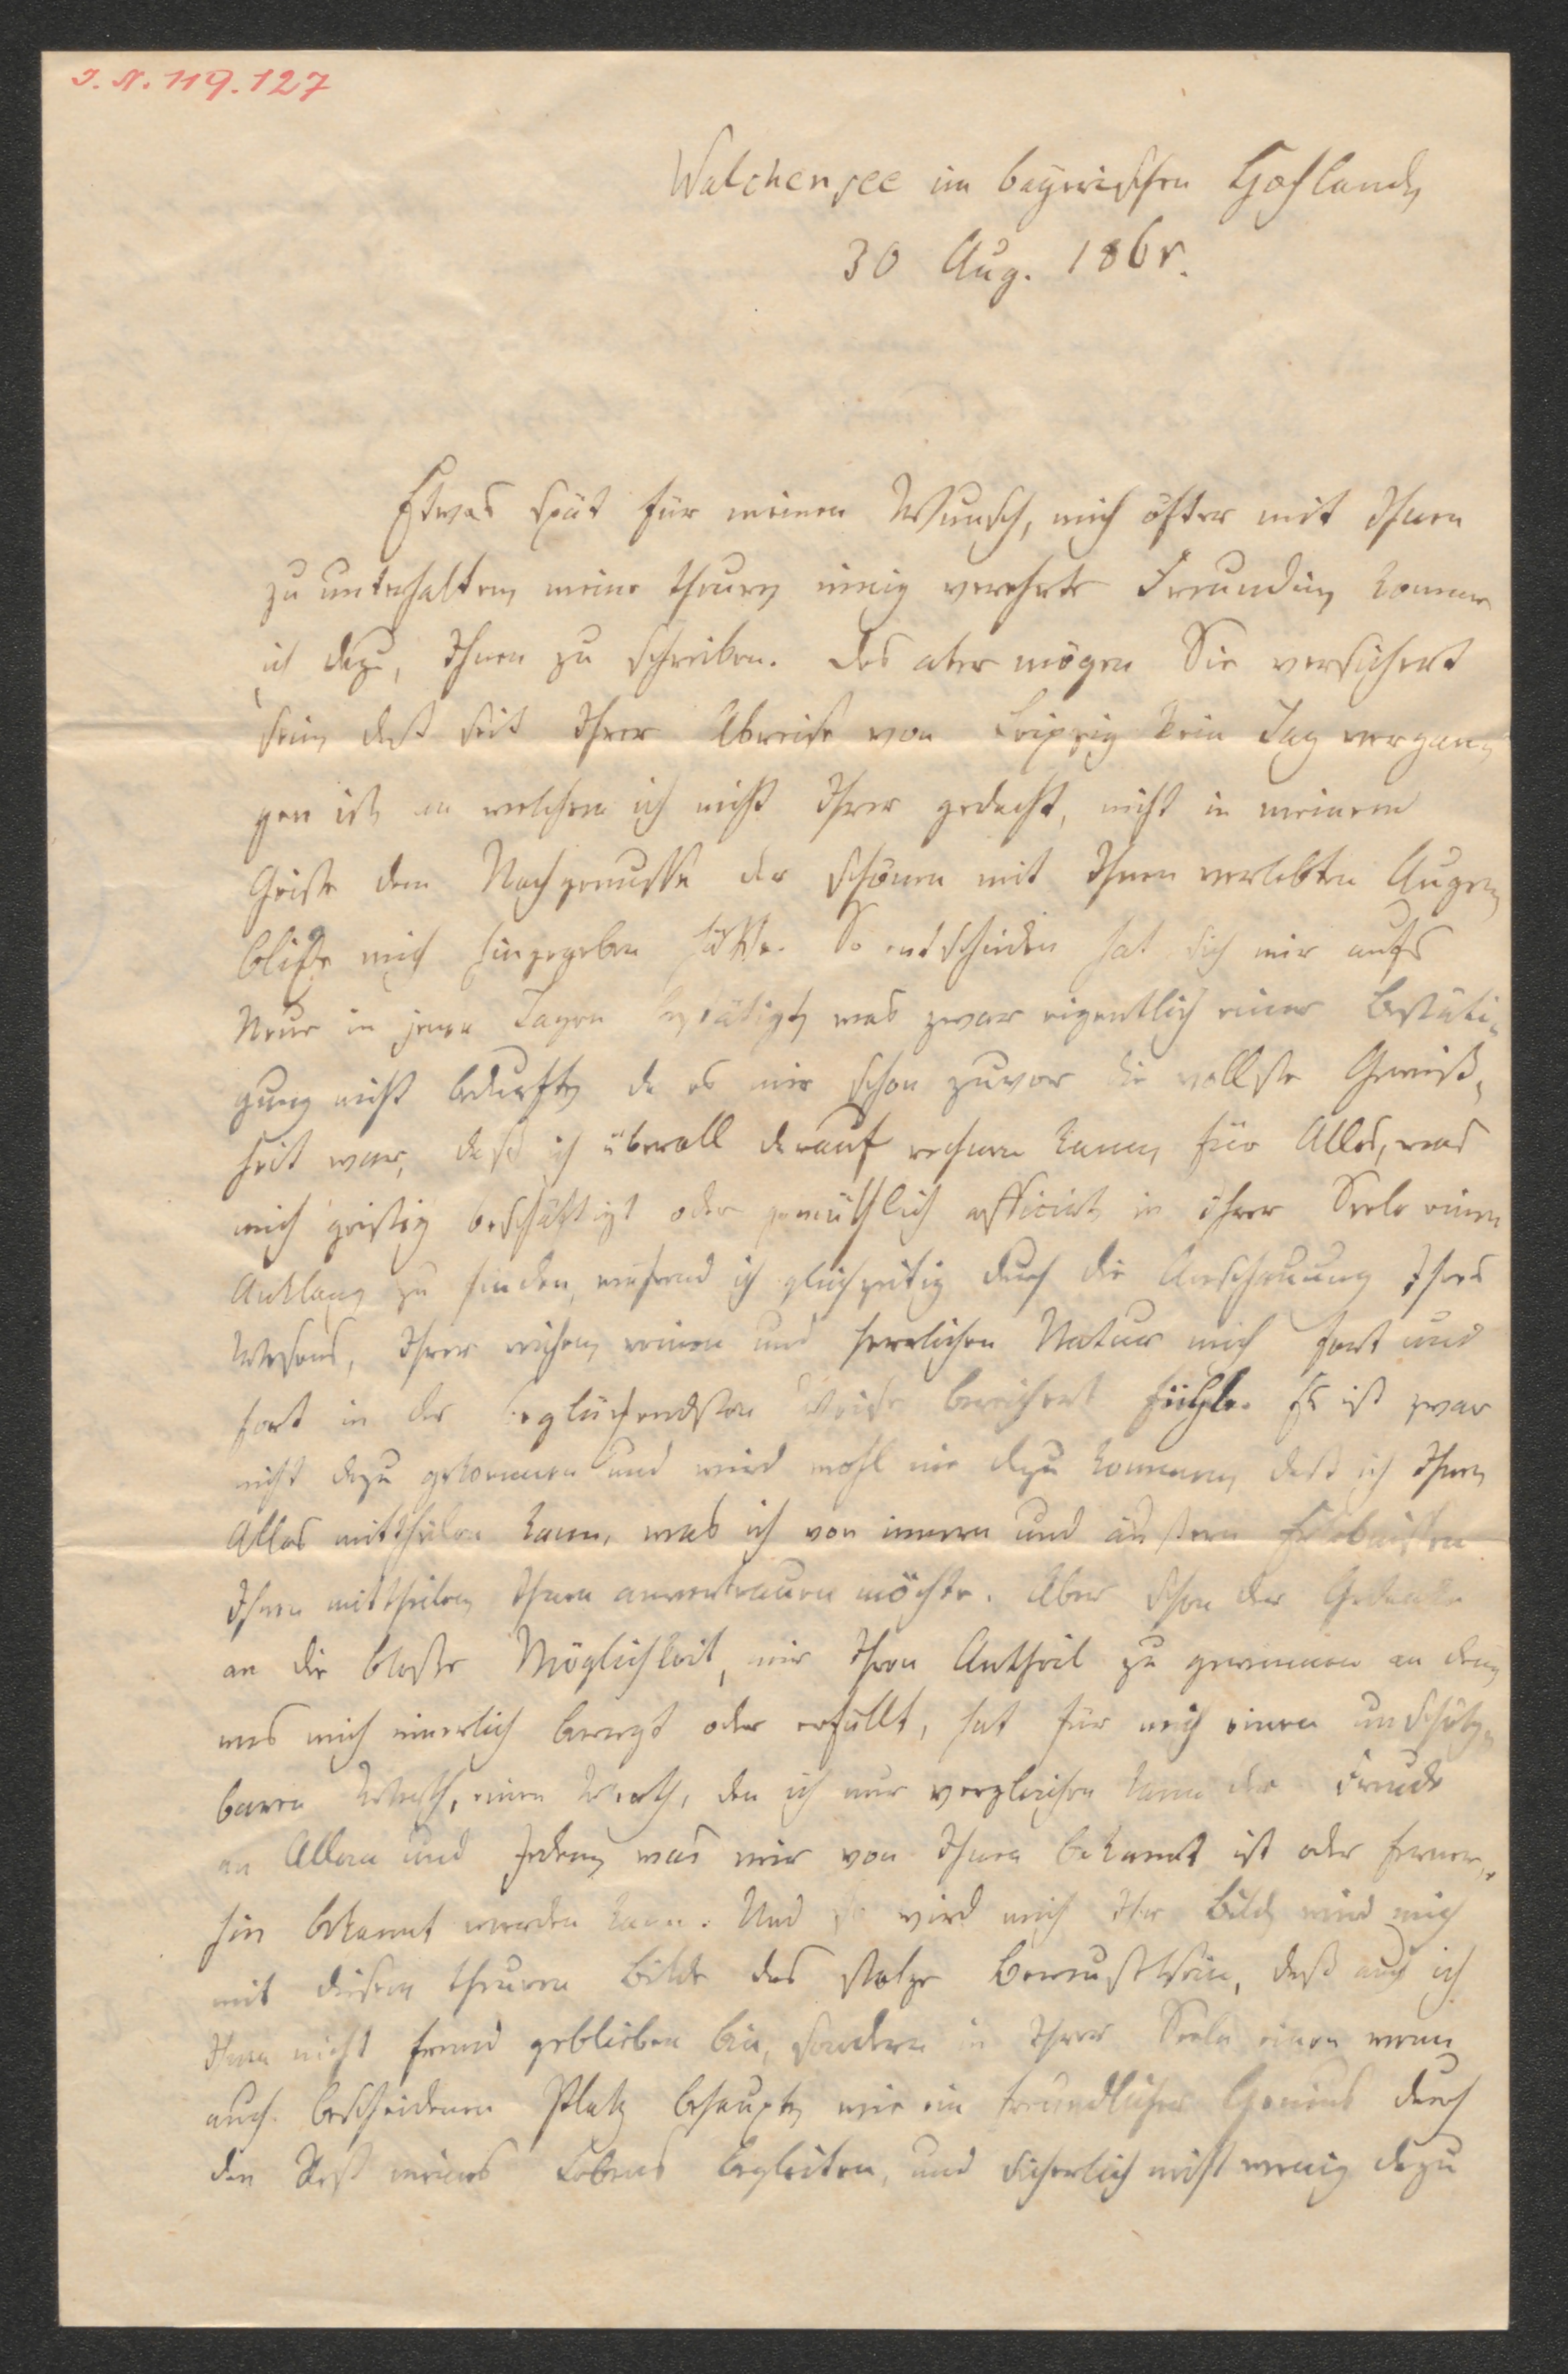 I. N. 119.127
Walchensee im bayerischen Hochland,
30 Aug. 1865.
Etwas spät für meinen Wunsch, mich öfter mit Ihnen
zu unterhalten, meine theure, innig verehrte Freundin, komme
ich dazu, Ihnen zu schreiben. Das aber mögen Sie versichert
sein, daß seit Ihrer Abreise von Leipzig kein Tag vergan-
gen ist, an welchem ich nicht Ihrer gedacht, nicht in meinem
Geiste dem Nachgenusse der schönen mit Ihnen verlebten Augen-
blicke mich hingegeben hätte. So entschieden hat sich mir aufs
Neue in jenen Tagen bestätigt, was zwar eigentlich einer Bestäti-
gung nicht bedurfte, da es mir schon zuvor die vollste Gewiß-
heit war, daß ich überall darauf rechnen kann, für Alles, was
mich geistig beschäftigt oder gemüthlich afficirt, in Ihrer Seele einen
Anklang zu finden, während ich gleichzeitig durch die Anschauung Ihres
Wesens, Ihrer reichen, reinen und herrlichen Natur mich fort und
fort in der beglückendsten Weise bereichert fühle. Es ist zwar
nicht dazu gekommen und wird wohl nie dazu kommen, daß ich Ihnen
Alles mittheilen kann, was ich von innern und äußern Erlebnissen
Ihnen mittheilen, Ihnen anvertrauen möchte. Aber schon der Gedanke
an die bloße Möglichkeit, mir Ihren Antheil zu gewinnen an dem,
was mich innerlich bewegt oder erfüllt, hat für mich einen unschätz-
baren Werth, einen Werth, den ich nur vergleichen kann der Freude
an Allem und Jedem, was mir von Ihnen bekannt ist oder ferner-
hin bekannt werden kann. Und so wird mich Ihr Bild, wird mich
mit diesem theuren Bilde das stolze Bewußtsein, daß auch ich
Ihnen nicht fremd geblieben bin, sondern in Ihrer Seele einen wenn
auch bescheidenen Platz behaupte, wie ein freundlicher Genius durch
den Rest meines Lebens begleiten, und sicherlich nicht wenig dazu